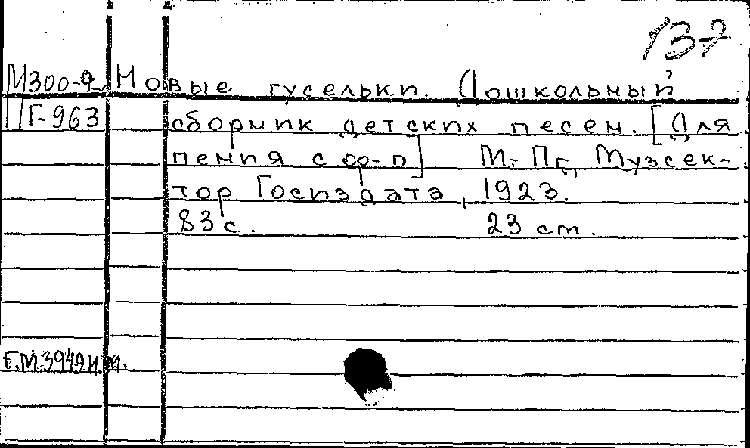 137
М300-9 Новые гусельки. Дошкольный
ПГ-963 сборник детских песен. [Для
пения с ф-п] М.-Пг., Музсек-
тор Госиздата, 1923.
83 с. 23 cm.